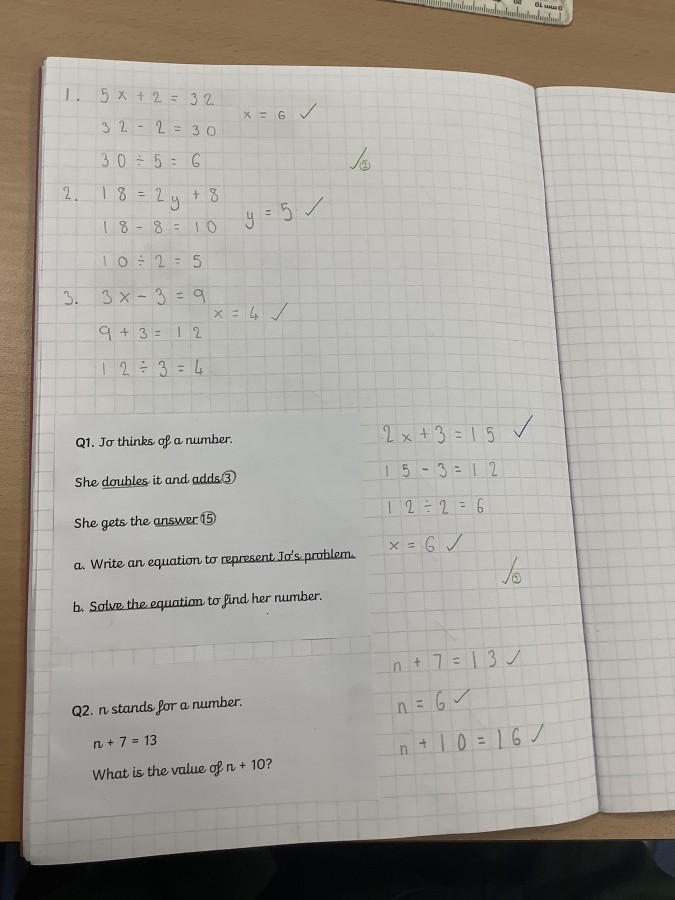 1. 5x + 2 = 32
x = 6 ✓
32 - 2 = 30
30 ÷ 5 = 6
2. 18 = 2y + 8
y = 5 ✓
18 - 8 = 10
10 ÷ 2 = 5
3. 3x - 3 = 9
x = 4 ✓
9 + 3 = 12
12 ÷ 3 = 4
Q1. Jo thinks of a number.
She doubles it and adds 3
She gets the answer 15
a. Write an equation to represent Jo's problem.
b. Solve the equation to find her number.
2x + 3 = 15 ✓
15 - 3 = 12
12 ÷ 2 = 6
x = 6 ✓
Q2. n stands for a number.
n + 7 = 13
What is the value of n + 10?
n + 7 = 13 ✓
n = 6 ✓
n + 10 = 16 ✓